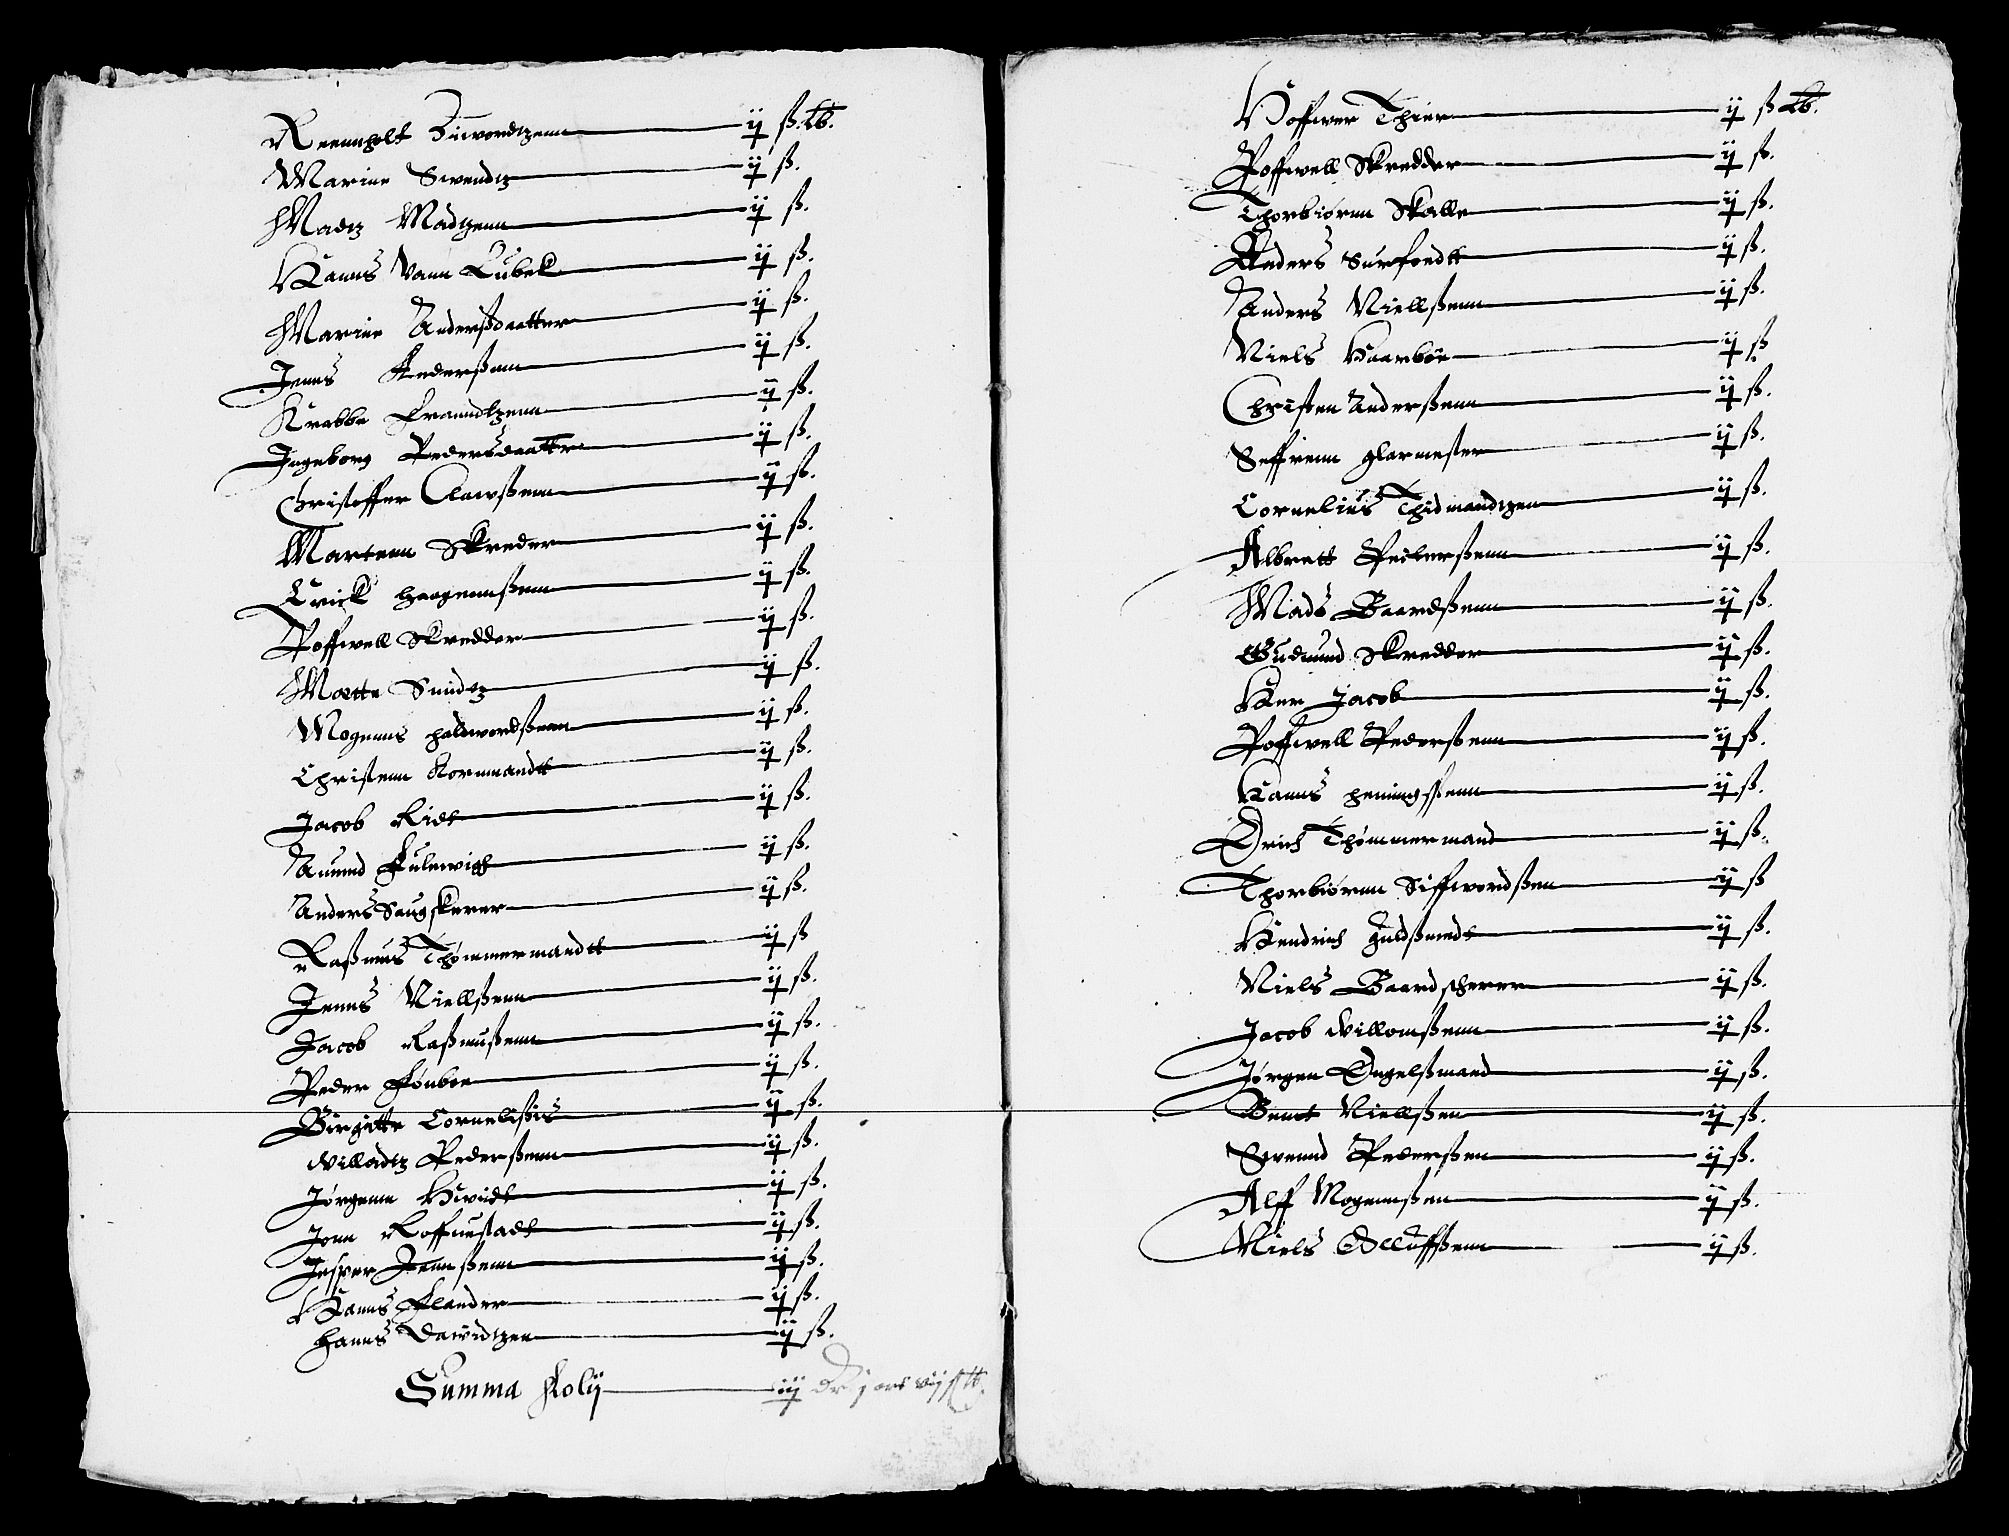 Reennholt Siiwordtzenn ij ß. Lb.
Marine Swendtz ij ß.
Madtz Madtzenn ij ß.
Hanns Vann Lubek ij ß.
Marine Anderßdaatter ij ß.
Jenns Pederßenn ij ß.
Krabbe Franndtzenn ij ß.
Ingeborg Pedersdaatter ij ß.
Christoffer Clawßenn ij ß.
Martenn Skreder ij ß.
Erick Haagennßenn ij ß.
Poffwell Skredder ij ß.
Mætte Sundtz ij ß.
Mogenns Haldwordßenn ij ß.
Christenn Normandtt ij ß.
Jacob Ridt ij ß.
Amund Fulewigh ij ß.
Anders Saugskerer ij ß.
Raßmus Thømmermandtt ij ß
Jenns Niellßenn ij ß.
Jacob Raßmußenn ij ß.
Peder Fønboe ij ß.
Birgitte Cornelißis ij ß.
Villadtz Pederßenn ij ß.
Jørgenn Hwidt ij ß.
Jonn Roffuestadt ij ß.
Jesper Jennßenn ij ß.
Hanns Flander ij ß.
Hanns Dawidtzen ij ß.
Summa folij iij Dr j ort vij ß Lb.
Hoffwer Thier ij ß Lb.
Poffwell Skredder ij ß.
Thorbiørnn Skalle ij ß.
Peders Surfoedtt ij ß.
Anders Niellßenn ij ß.
Niels Haarboe ij ß
Christen Anderßenn ij ß.
Seffrenn Glarmester ij ß.
Cornelius Thidmandtzen ij ß.
Albrett Pederßenn ij ß.
Mads Baardßenn ij ß.
Gudmund Skredder ij ß.
Her Jacob ij ß.
Poffwell Pederßenn ij ß.
Hanns Henningsßenn ij ß.
Erich Thømmermand ij ß.
Thorbiørnn Siffwordßen ij ß
Hendrich Guldßmedt ij ß.
Niels Baardscherer ij ß.
Jacob Villomßenn ij ß.
Jørgen Engelßmand ij ß.
Bent Niellßen ij ß.
Swennd Pederßen ij ß.
Alff Mogennßen ij ß.
Niels Olluffßenn ij ß.